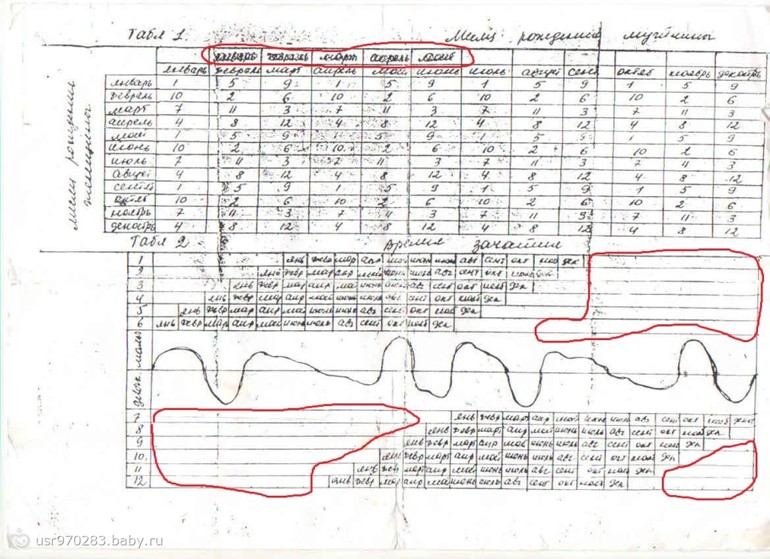 Табл 1 Месяц рождения мужчины
январь февраль март апрель июнь
январь февраль март апрель май июнь июль август сент октяб ноябрь декабрь
Месяц рождения женщины
январь 1 5 9 1 5 9 1 5 9 1 5 9
февраль 10 2 6 10 2 6 10 2 6 10 2 6
март 7 11 3 7 11 3 7 11 3 7 11 3
апрель 4 8 12 4 8 12 4 8 12 4 8 12
май 1 5 9 1 5 9 1 5 9 1 5 9
июнь 10 2 6 10 2 6 10 2 6 10 2 6
июль 7 11 3 7 11 3 7 11 3 7 11 3
август 4 8 12 4 8 12 4 8 12 4 8 12
сент 1 5 9 1 5 9 1 5 9 1 5 9
10 2 6 10 2 6 10 2 6 10 2 6
ноябрь 7 11 3 7 11 3 7 11 3 7 11 3
декабрь 4 8 12 4 8 12 4 8 12 4 8 12
Табл 2 время зачатия
1 янв февр мар апр май июнь июль авг сент окт нояб дек
2 янв февр мар апр май июнь июль авг сент окт
3 янв февр мар апр май июнь июль авг сент окт нояб дек
4 янв февр мар апр май июнь июль авг сент окт нояб дек
5 янв февр мар апр май июнь июль авг сент окт нояб дек
6 янв февр мар апр май июнь июль авг сент окт нояб дек
девоч. мальч
7 янв февр март апр май июнь июль авг сент окт нояб дек
8 янв февр март апр май июнь июль авг сент окт нояб дек
9 янв февр март апр май июнь июль авг сент окт нояб дек
10. янв февр март апр май июнь июль авг сент окт нояб дек
11 янв февр март апр май июнь июль авг сент окт нояб дек
12 янв февр мар апр май июнь июль авг сент окт нояб дек
usr970283.baby.ru